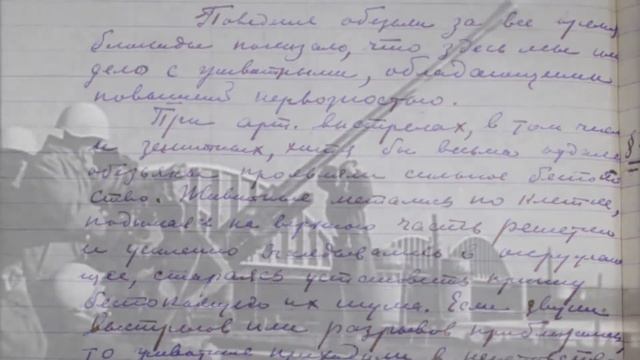 Поведение обезьян за все время
блокады показало, что здесь мы им
дело с животными, обладающими
повышенной нервозностью.
При арт. выстрелах, в том числе
и зенитных, хотя бы весьма отдале
обезьяны проявляли сильное беспокой
ство. Животные метались по клетке,
поднимаясь на верхнюю часть решетки
и усиленно вглядывались в окружаю
щее, стараясь установить причину
беспокоящего их шума. Если звуки
выстрелов или разрывов приближались,
то животные приходили в